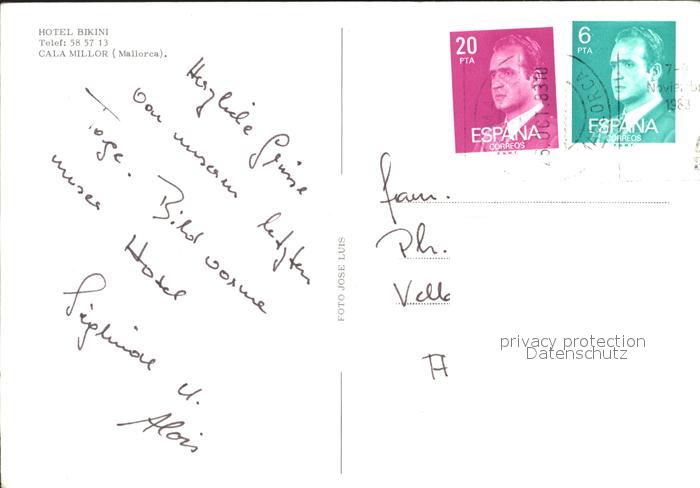 HOTEL BIKINI
Telef: 58 57 13
CALA MILLOR (Mallorca).
Herzliche Grüsse
von unseren letzten
Tage. Bild vorne
unser Hotel
Sieglinde u.
Alois
FOTO JOSE LUIS
20
PTA
ESPAÑA
CORREOS
F.N.M.T.
6
PTA
ESPAÑA
CORREOS
F.N.M.T.
OCT. 83
Noviembre
1983
Fam.
Ph.
Velb
A
privacy protection
Datenschutz